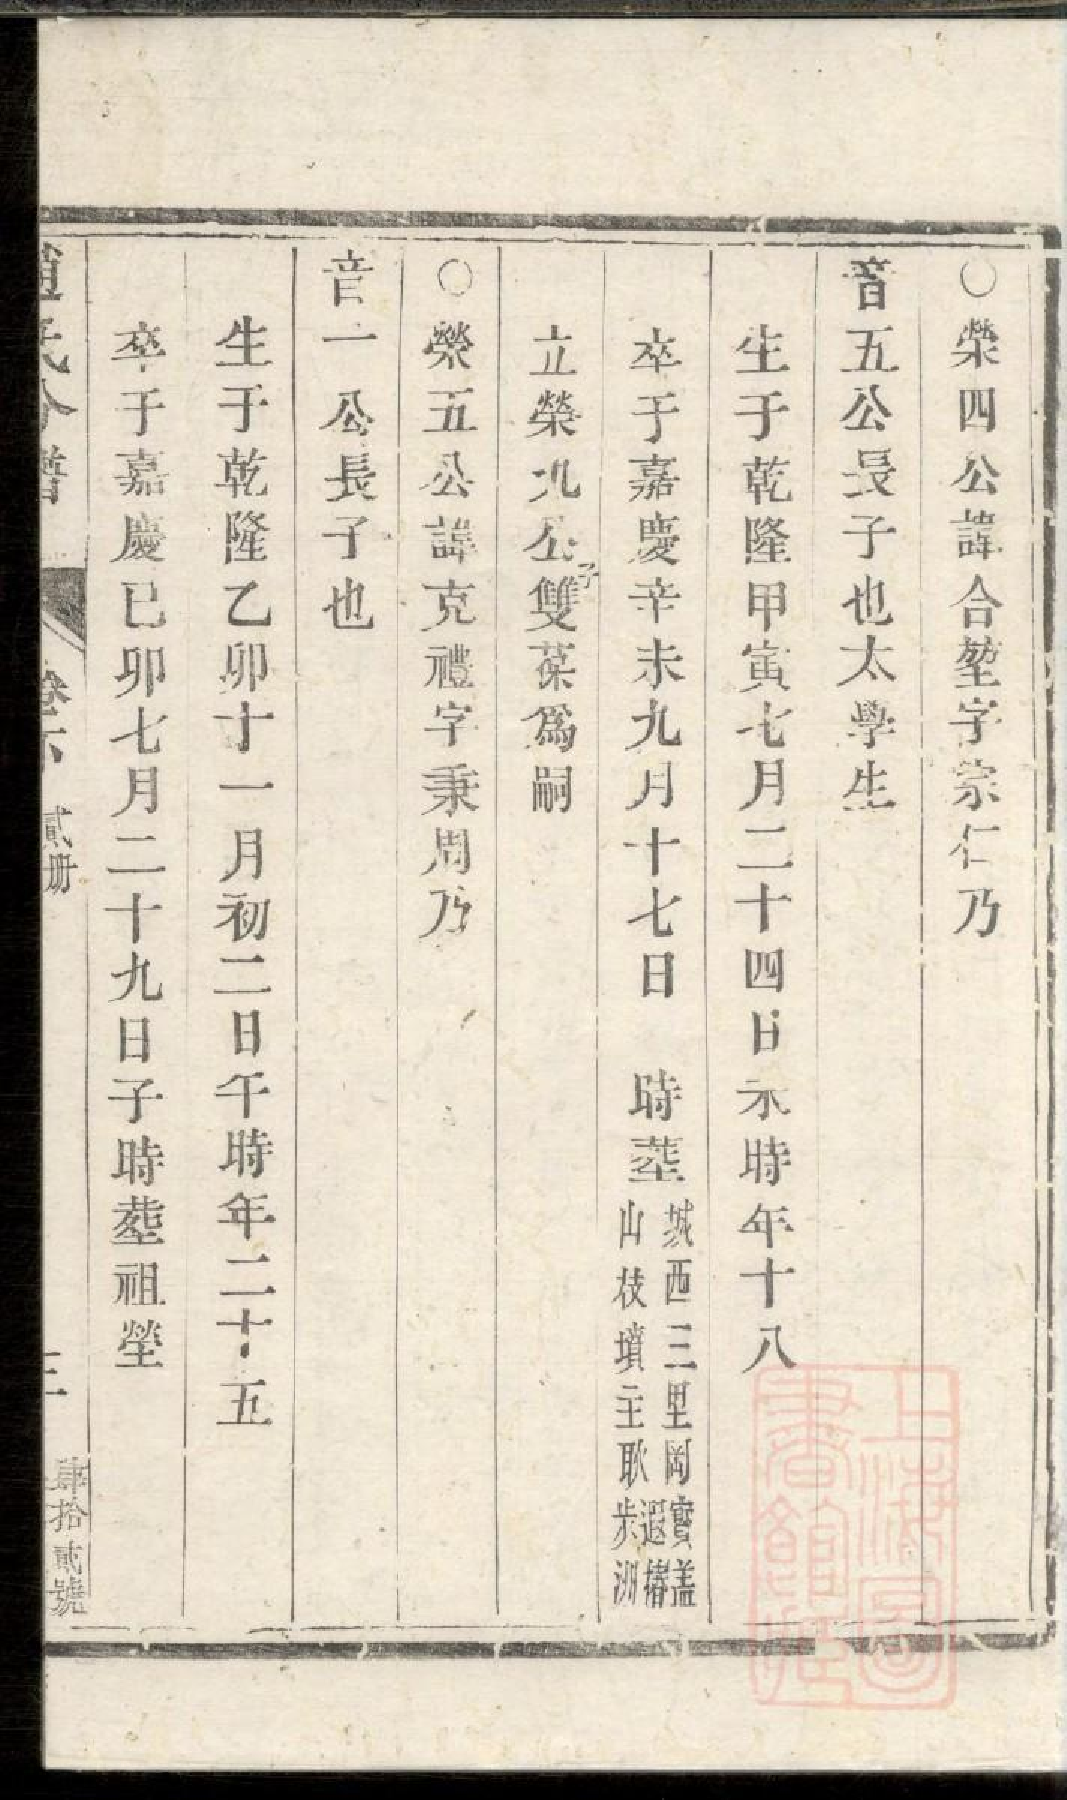 ○榮四公諱合堃字宗仁乃
音五公長子也太學生
生于乾隆甲寅七月二十四日未時年十八
卒于嘉慶辛未九月十七日　時塟城西三里岡寶盖
山枝墳主耿遐椿
步洲
立榮九公子雙葆爲嗣
○榮五公諱克禮字秉周乃
音一公長子也
生于乾隆乙卯十一月初二日午時年二十五
卒于嘉慶己卯七月二十九日子時塟祖塋
趙氏分譜
卷六
貳册
三
肆拾貳號
上海圖書館藏